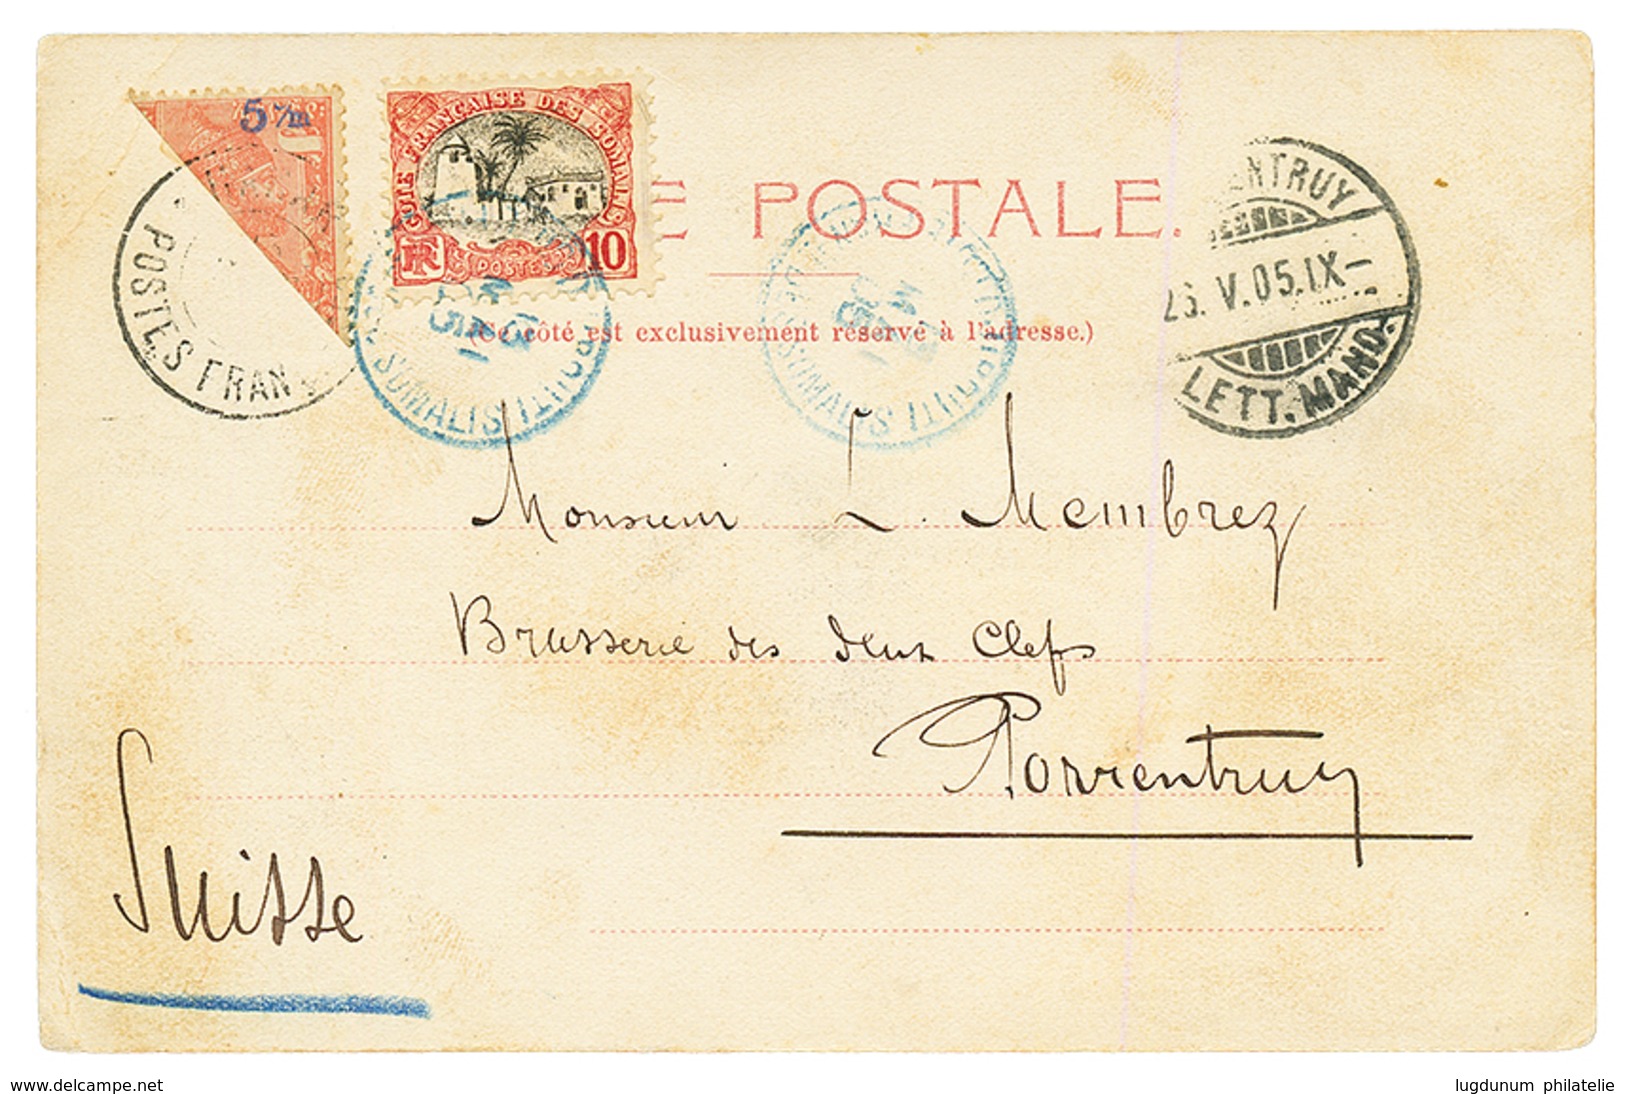 5 c/m
CÔTE FRANÇAISE DES SOMALIS
RF
POSTES
10
E POSTALE.
(Ce côté est exclusivement réservé à l'adresse.)
POSTES FRAN
SOMALIS
DJIBOUTI
SOMALIS
DJIBOUTI
ENTRUY
26.V.05.IX-
LETT. MAND.
Monsieur L. Membrez
Brasserie des deux Clefs
Porrentruy
Suisse
www.delcampe.net
lugdunum philatelie